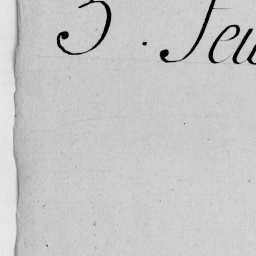 3. Feu